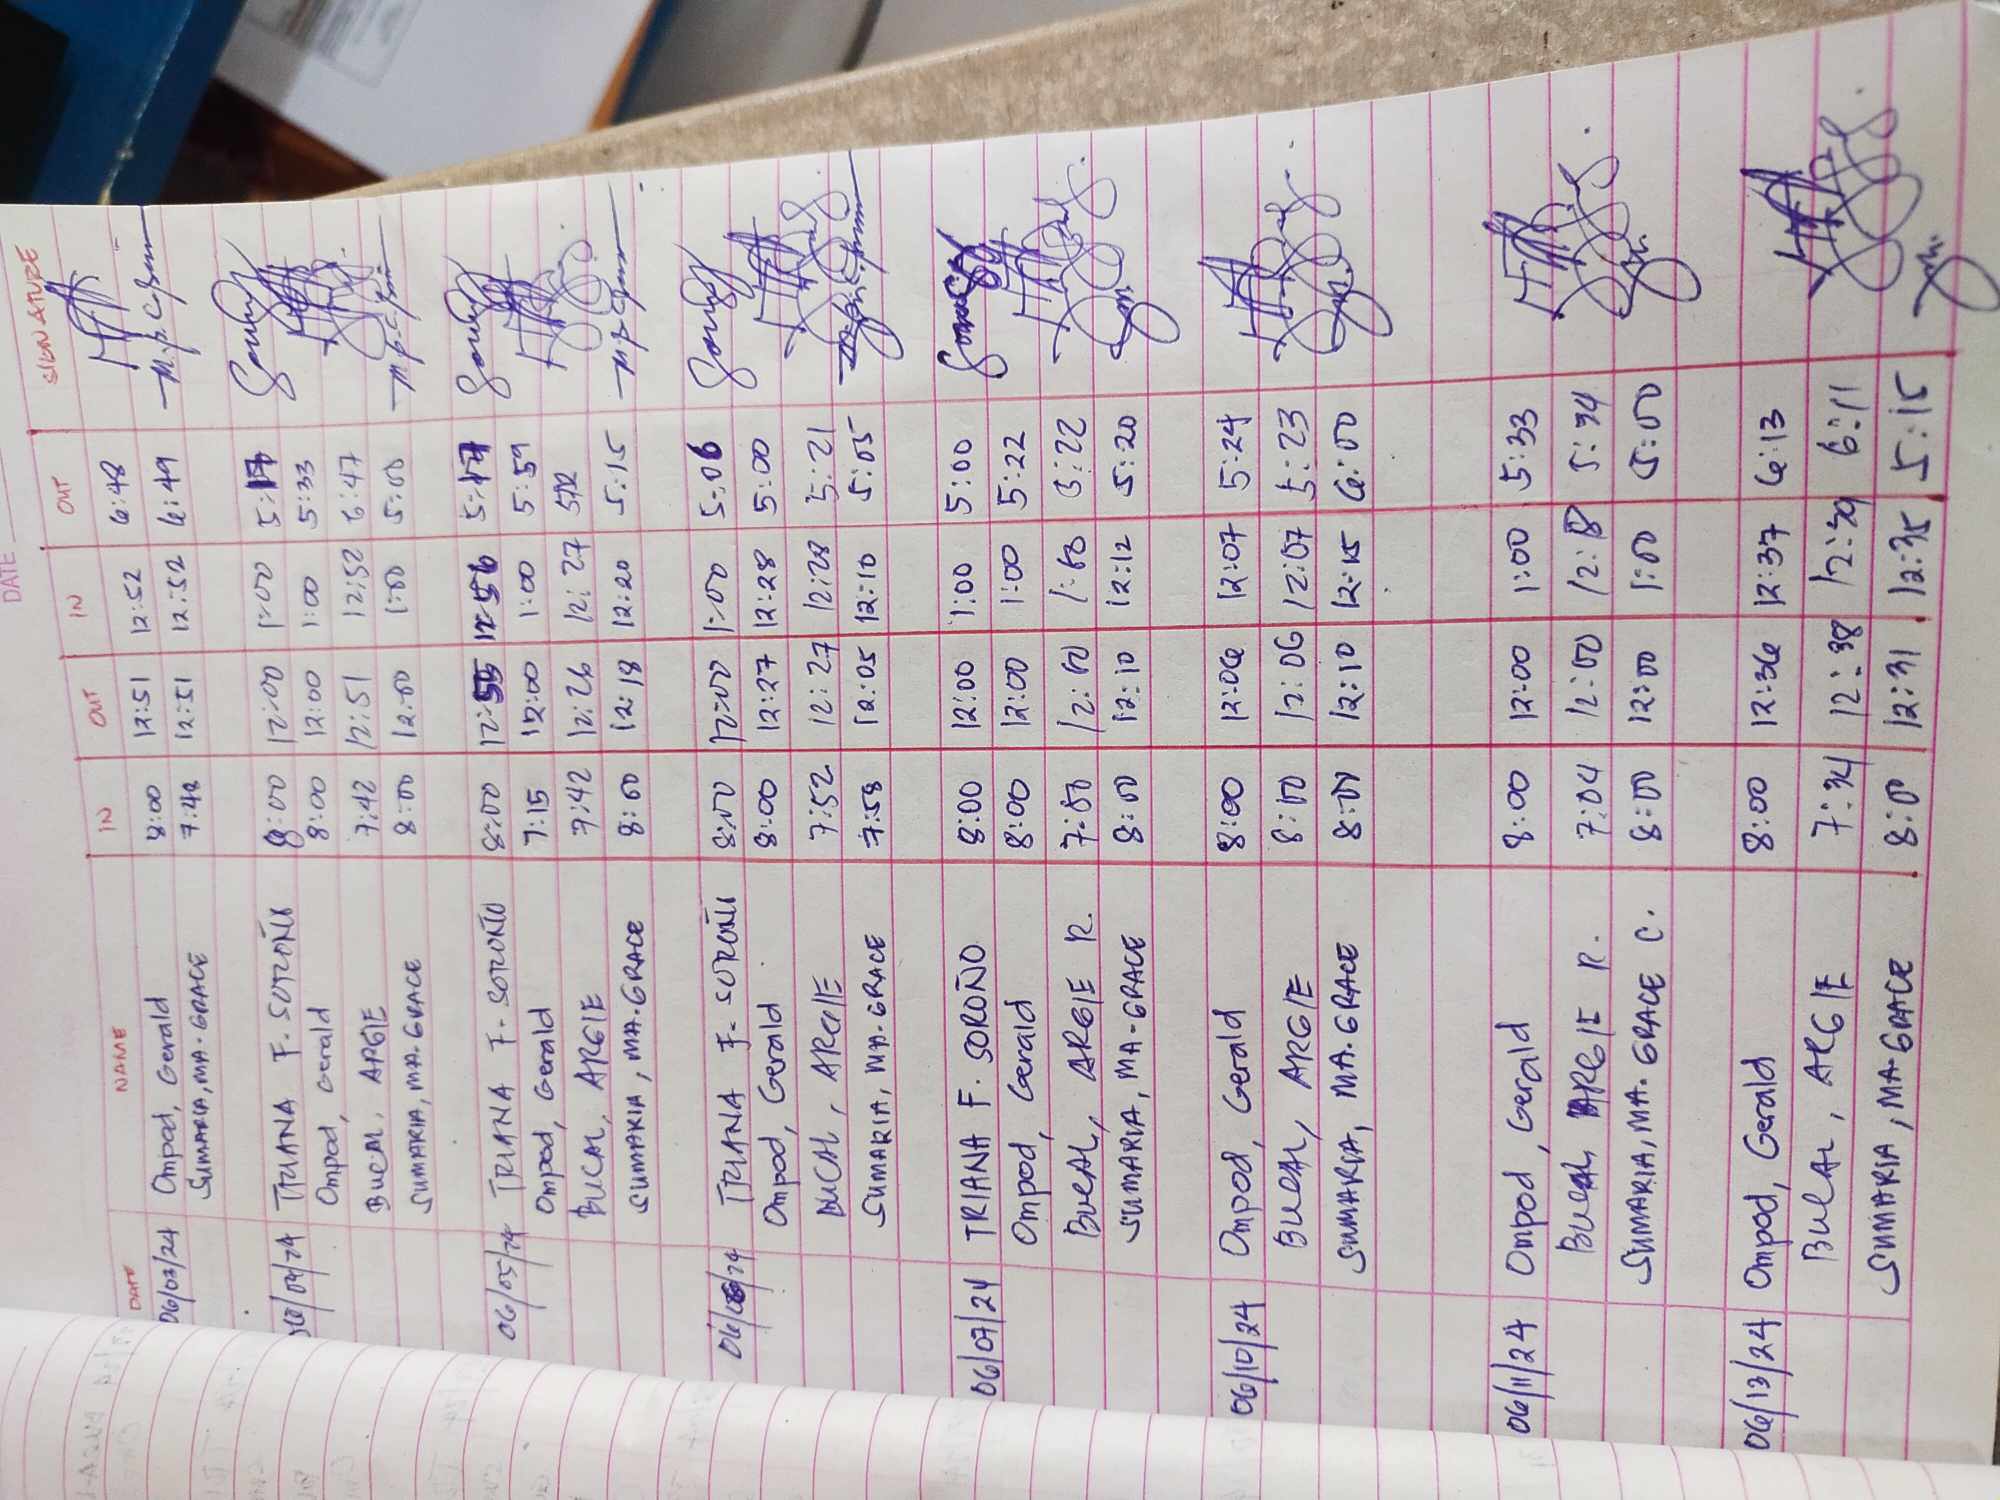 DATE
DATE NAME IN OUT IN OUT SIGNATURE
06/03/24 Ompod, Gerald 8:00 12:51 12:52 6:48
SUMARIA, MA. GRACE 7:48 12:51 12:52 6:49
06/04/24 TRIANA F. SOROÑO 8:00 12:00 1:00
Ompod, Gerald 8:00 12:00 1:00 5:33
BUCAL, ARGIE 7:42 12:51 12:52 6:47
SUMARIA, MA. GRACE 8:00 12:00 1:00 5:00
06/05/24 TRIANA F. SOROÑO 8:00 12:55 12:56 5:17
Ompod, Gerald 7:15 12:00 1:00 5:59
BUCAL, ARGIE 7:42 12:26 12:27
SUMARIA, MA. GRACE 8:00 12:18 12:20 5:15
06/06/24 TRIANA F. SOROÑO 8:00 12:00 1:00 5:06
Ompod, Gerald 8:00 12:27 12:28 5:00
BUCAL, ARGIE 7:52 12:27 12:28 5:21
SUMARIA, MA. GRACE 7:58 12:05 12:10 5:05
06/07/24 TRIANA F. SOROÑO 8:00 12:00 1:00 5:00
Ompod, Gerald 8:00 12:00 1:00 5:22
BUCAL, ARGIE R. 7:50 12:00 1:00 5:22
SUMARIA, MA. GRACE 8:00 12:10 12:12 5:20
06/10/24 Ompod, Gerald 8:00 12:06 12:07 5:24
BUCAL, ARGIE 8:00 12:06 12:07 5:23
SUMARIA, MA. GRACE 8:00 12:10 12:15 6:00
06/11/24 Ompod, Gerald 8:00 12:00 1:00 5:33
BUCAL, ARGIE R. 7:04 12:00 5:34
SUMARIA, MA. GRACE C. 8:00 12:00 1:00 5:00
06/13/24 Ompod, Gerald 8:00 12:36 12:37 6:13
BUCAL, ARGIE 7:34 12:38 12:39 6:11
SUMARIA, MA. GRACE 8:00 12:31 12:35 5:15